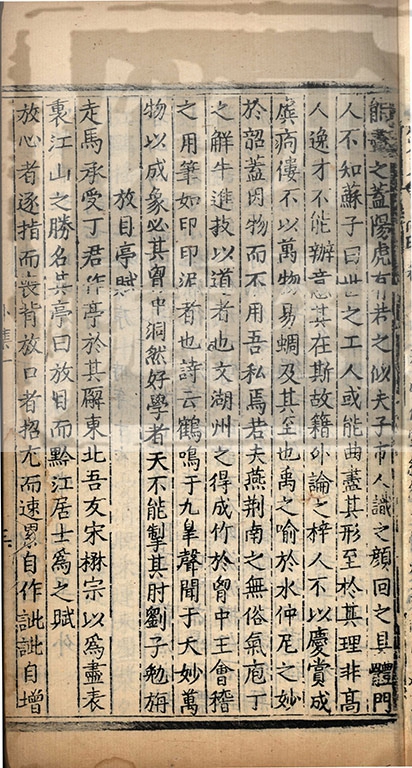 能盡之蓋陽虎有若之似夫子市人識之顔回之具體門
人不知蘇子曰世之工人或能曲盡其形至於其理非高
人逸才不能辦意其在斯故籍外論之梓人不以慶賞成
痀僂不以萬物易蜩及其至也禹之喻於水仲尼之妙
於韶蓋因物而不用吾私焉若夫燕荆南之無俗氣庖丁
之解牛進技以道者也文湖州之得成竹於胷中王會稽
之用筆如印印泥者也詩云鶴鳴于九皐聲聞于天妙萬
物以成象必其胷中洞然好學者天不能掣其肘劉子勉旃
放目亭賦
走馬承受丁君作亭於其廨東北吾友宋楙宗以爲盡表
裏江山之勝名其亭曰放目而黔江居士爲之賦
放心者逐指而喪背放口者招尤而速累自作訿訿自增